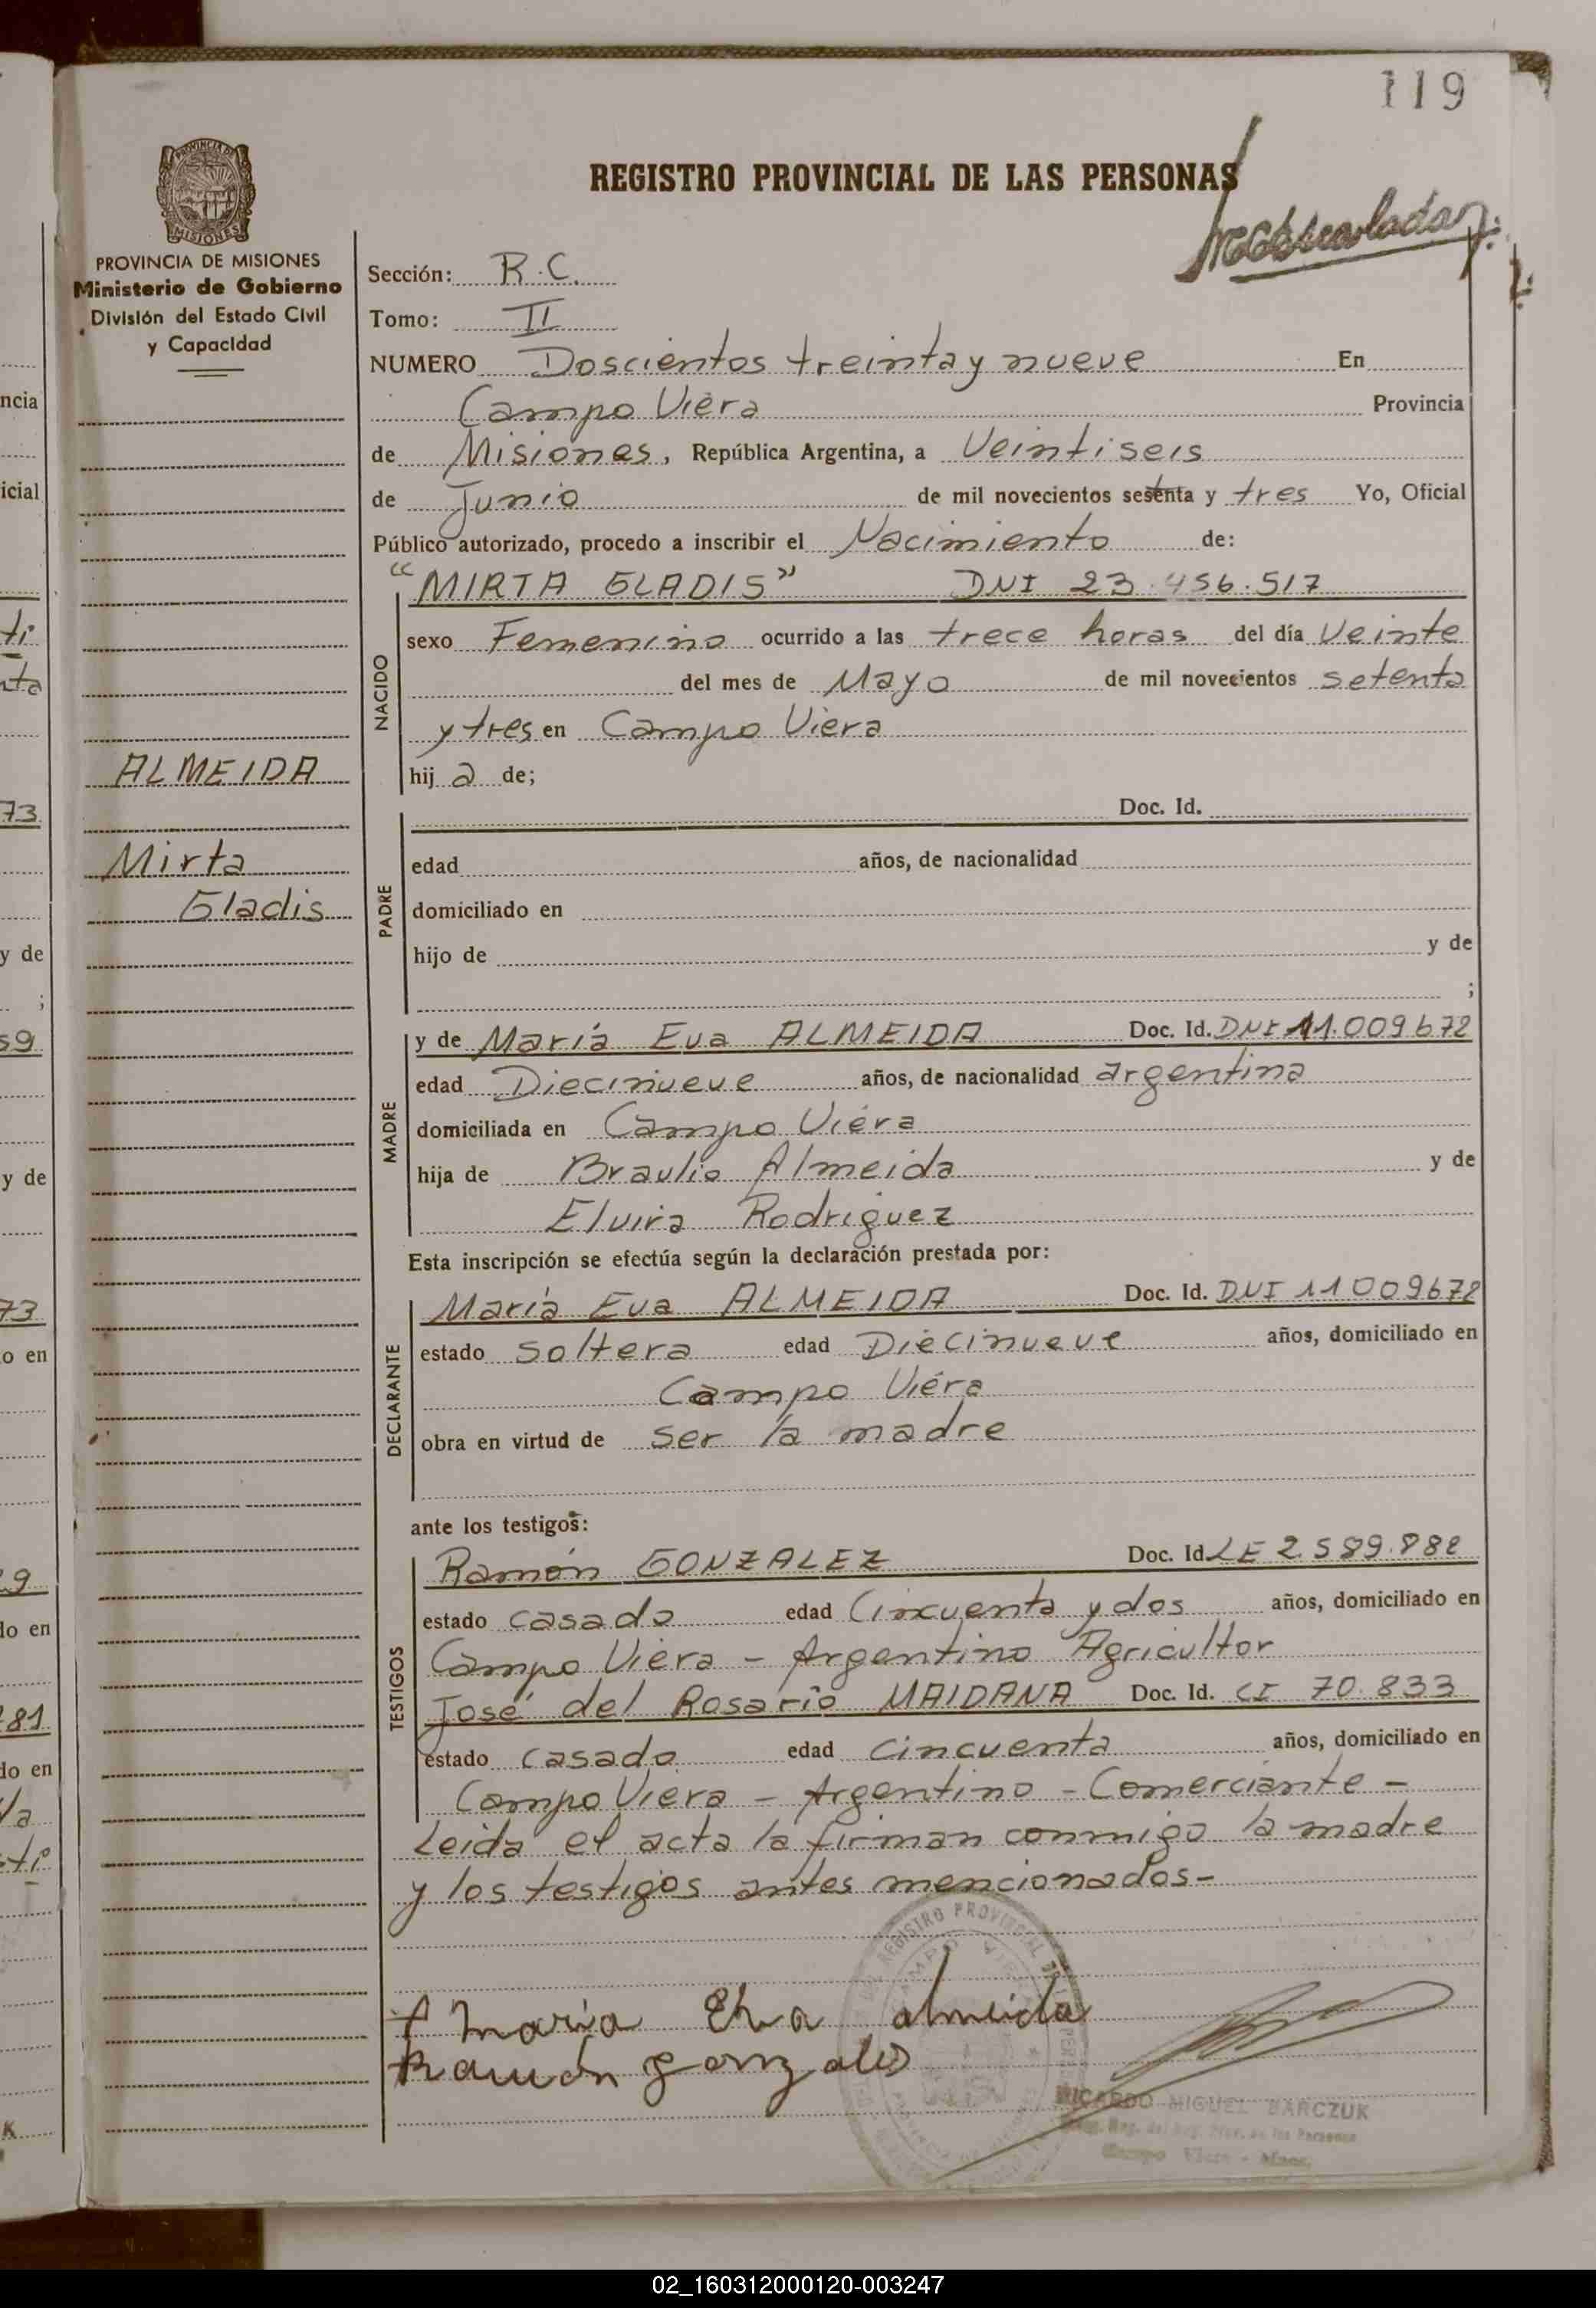 119
REGISTRO PROVINCIAL DE LAS PERSONAS
PROVINCIA DE
MISIONES
PROVINCIA DE MISIONES
Ministerio de Gobierno
División del Estado Civil
y Capacidad
ALMEIDA
Mirta
Gladis
Sección: R.C.
Tomo: II
NUMERO Doscientos treinta y nueve En
Campo Viera Provincia
de Misiones, República Argentina, a Veintiseis
de Junio de mil novecientos sesenta y tres Yo, Oficial
Público autorizado, procedo a inscribir el Nacimiento de:
NACIDO
"MIRTA GLADIS" DNI 23.456.517
sexo Femenino ocurrido a las trece horas del día Veinte
del mes de Mayo de mil novecientos setenta
y tres en Campo Viera
hij a de;
PADRE
Doc. Id.
edad años, de nacionalidad
domiciliado en
hijo de y de
;
MADRE
y de María Eva ALMEIDA Doc. Id. DNI 11.009672
edad Diecinueve años, de nacionalidad argentina
domiciliada en Campo Viera
hija de Braulio Almeida y de
Elvira Rodriguez
Esta inscripción se efectúa según la declaración prestada por:
DECLARANTE
María Eva ALMEIDA Doc. Id. DNI 11009672
estado soltera edad Diecinueve años, domiciliado en
Campo Viera
obra en virtud de ser la madre
ante los testigos:
TESTIGOS
Ramón GONZALEZ Doc. Id. LE 2.589.882
estado casado edad Cincuenta y dos años, domiciliado en
Campo Viera - Argentino Agricultor
José del Rosario MAIDANA Doc. Id. CI 70.833
estado casado edad cincuenta años, domiciliado en
Campo Viera - Argentino - Comerciante -
Leida el acta la firman conmigo la madre
y los testigos antes mencionados-
REGISTRO PROVINCIAL DE
Maria Eva almeida
Ramón gonzales
RICARDO MIGUEL BARCZUK
Campo Viera - Mnes.
02_160312000120-003247